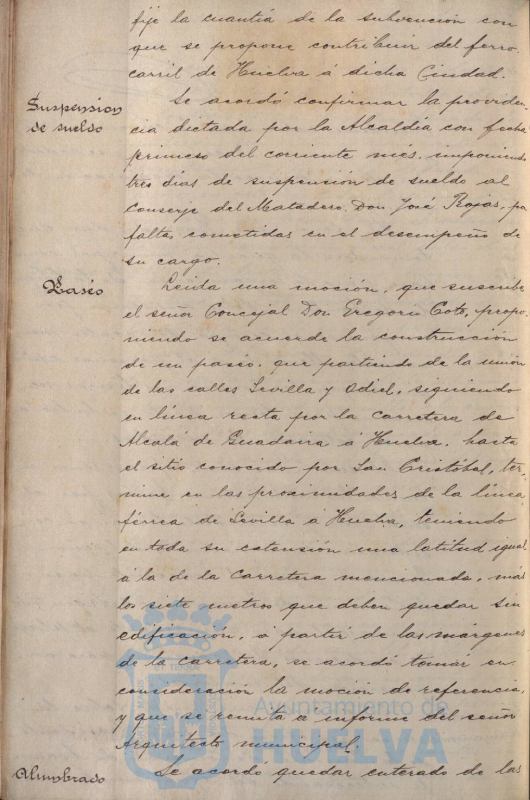 fije la cuantía de la subvención con
que se propone contribuir del ferro
carril de Huelva á dicha Ciudad.
Suspension
de sueldo
Se acordó confirmar la providen
cia dictada por la Alcaldía con fecha
primero del corriente més, imponiendo
tres dias de suspensión de sueldo al
Conserje del Matadero Don José Rojas, por
faltas cometidas en el desempeño de
su cargo.
Paséo
Leida una moción, que suscribe
el señor Concejal Don Gregorio Coto, propo
niendo se acuerde la construcción
de un paseo, que partiendo de la unión
de las calles Sevilla y Odiel, siguiendo
en línea recta por la carretera de
Alcalá de Guadaira á Huelva, hasta
el sitio conocido por San Cristóbal, ter,
mine en las proximidades de la línea
férrea de Sevilla á Huelva, teniendo
en toda su estensión una latitud igual
á la de la carretera mencionada, más
los siete metros que deben quedar sin
edificación, á partir de las márgenes
de la carretera, se acordó tomar en
consideración la moción de referencia
y que se remita á informe del señor
Arquitecto municipal.
Alumbrado
Se acordo quedar enterado de las
Ayuntamiento de
HUELVA